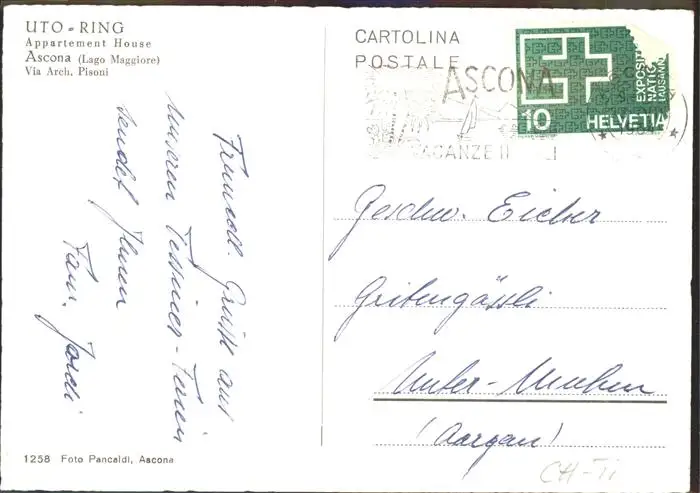 UTO-RING
Appartement House
Ascona (Lago Maggiore)
Via Arch. Pisoni
CARTOLINA
POSTALE
ASCONA
VACANZE
EXPOSIT
NATIO
LAUSANN
10 HELVETIA
Freundl. Grüsse aus
unseren Tessiner-Ferien
sendet Ihnen
Fam. Jordi
Geschw. Eicher
Gritengässli
Unter-Muhen
(Aargau)
CH-Ti
1258 Foto Pancaldi, Ascona